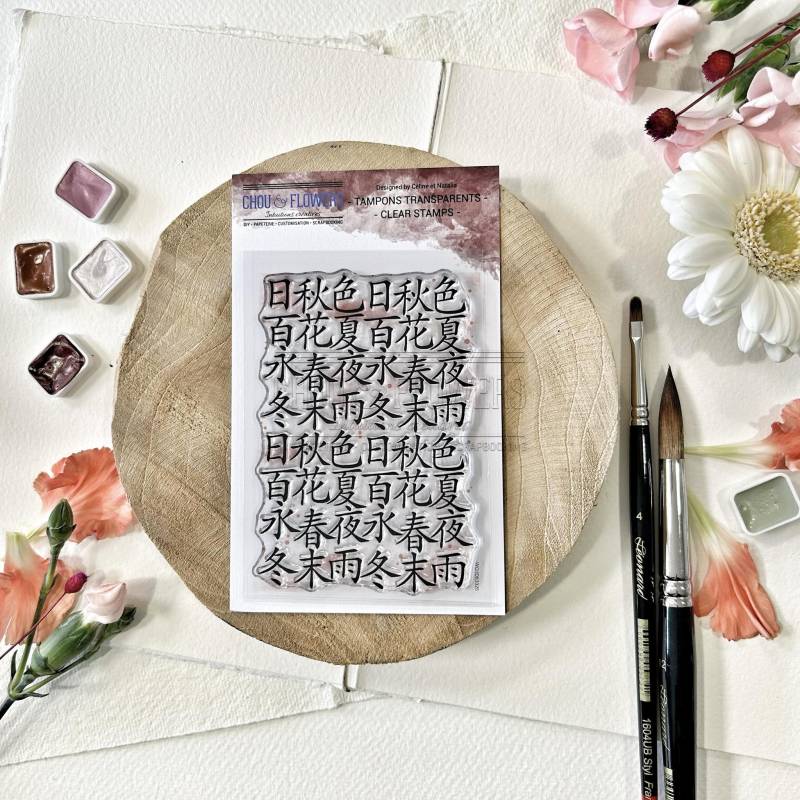 CHOU & FLOWERS
Intuitions créatives
DIY • PAPETERIE • CUSTOMISATION • SCRAPBOOKING
Designed by Céline et Natalia
- TAMPONS TRANSPARENTS -
- CLEAR STAMPS -
日秋色日秋色
百花夏百花夏
永春夜永春夜
冬末雨冬末雨
日秋色日秋色
百花夏百花夏
永春夜永春夜
冬末雨冬末雨
4
Léonard
1604UB Styl